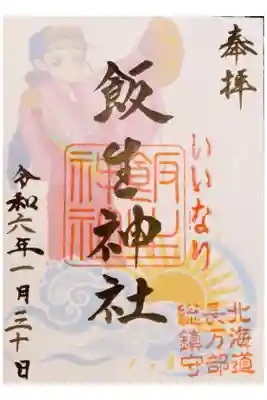 奉拝
いいなり
北海道
長万部
総鎮守
飯生神社
飯生
神社
令和六年一月三十日